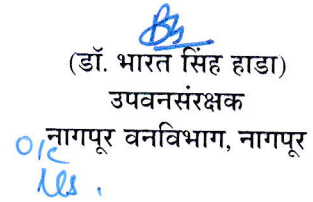 (डॉ. भारत सिंह हाडा)
उपवनसंरक्षक
नागपूर वनविभाग, नागपूर
O/c